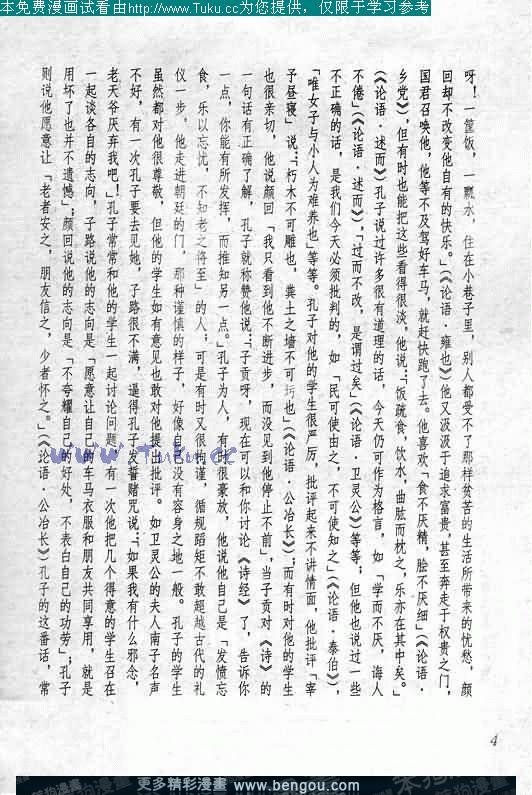 本免费漫画试看由http://www.Tuku.cc为您提供，仅限于学习参考
呀！一筐饭，一瓢水，住在小巷子里，别人都受不了那样贫苦的生活所带来的忧愁，颜
回却不改变他自有的快乐。”（《论语·雍也》）他又汲汲于追求富贵，甚至奔走于权贵之门，
国君召唤他，他等不及驾好车马，就赶快跑了去。他喜欢“食不厌精，脍不厌细”（《论语·
乡党》），但有时也能把这些看得很淡，他说：“饭疏食，饮水，曲肱而枕之，乐亦在其中矣。”
（《论语·述而》）孔子说过许多很有道理的话，今天仍可作为格言，如“学而不厌，诲人
不倦”（《论语·述而》），“过而不改，是谓过矣”（《论语·卫灵公》）等等；但他也说过一些
不正确的话，是我们今天必须批判的，如“民可使由之，不可使知之”（《论语·泰伯》），
“唯女子与小人为难养也”等等。孔子对他的学生很严厉，批评起来不讲情面，他批评“宰
予昼寝”说：“朽木不可雕也，粪土之墙不可圬也”（《论语·公冶长》）；而有时对他的学生
也很亲切，他说颜回“我只看到他不断进步，而没见到他停止不前”，当子贡对《诗》的
一句话有正确了解，孔子就称赞他说：“子贡呀，现在可以和你讨论《诗经》了，告诉你
一点，你能有所发挥，而推知另一点。”孔子为人，有时很豪放，他说他自己是“发愤忘
食，乐以忘忧，不知老之将至”的人；可是有时又很拘谨，循规蹈矩不敢超越古代的礼
仪一步，他走进朝廷的门，那种谨慎的样子，好像自己没有容身之地一般。孔子的学生
虽然都对他很尊敬，但他的学生如有意见也敢对他提出批评。如卫灵公的夫人南子名声
不好，有一次孔子要去见她，子路很不满，逼得孔子发誓赌咒说：“如果我有什么邪念，
老天爷厌弃我吧！”孔子常常和他的学生一起讨论问题，有一次他把几个得意的学生召在
一起谈各自的志向，子路说他的志向是“愿意让自己的车马衣服和朋友共同享用，就是
用坏了也并不遗憾”；颜回说他的志向是“不夸耀自己的好处，不表白自己的功劳”；孔子
则说他愿意让“老者安之，朋友信之，少者怀之。”（《论语·公冶长》）孔子的这番话，常
www.Tuku.cc
4
更多精彩漫畫 www.bengou.com